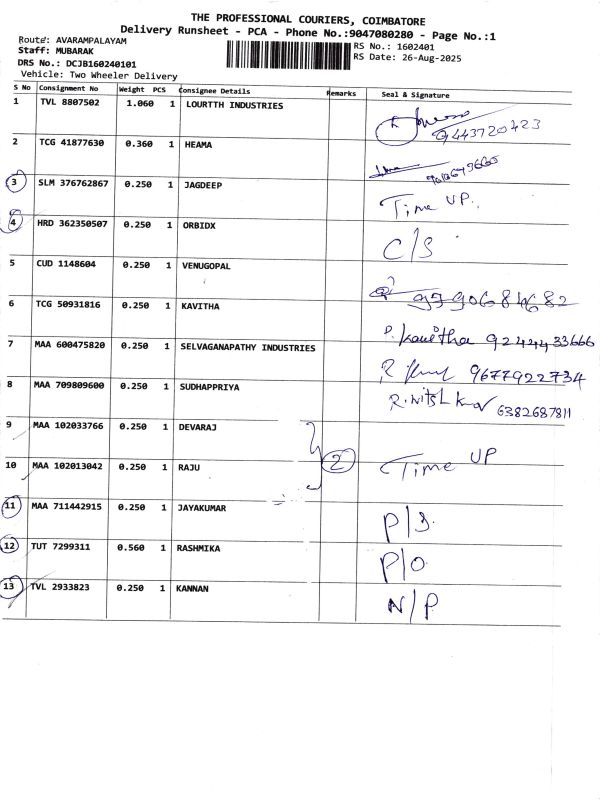 THE PROFESSIONAL COURIERS, COIMBATORE
Delivery Runsheet - PCA - Phone No.:9047080280 - Page No.:1
Route: AVARAMPALAYAM
Staff: MUBARAK
RS No.: 1602401
DRS No.: DCJB160240101
RS Date: 26-Aug-2025
Vehicle: Two Wheeler Delivery
S No Consignment No Weight PCS Consignee Details Remarks Seal & Signature
1 TVL 8807502 1.060 1 LOURTTH INDUSTRIES 9443720423
2 TCG 41877630 0.360 1 HEAMA
3 SLM 376762867 0.250 1 JAGDEEP Time UP.
4 HRD 362350507 0.250 1 ORBIDX C/S
5 CUD 1148604 0.250 1 VENUGOPAL 9590684682
6 TCG 50931816 0.250 1 KAVITHA P. Kavitha 9244433666
7 MAA 600475820 0.250 1 SELVAGANAPATHY INDUSTRIES 9677922734
8 MAA 709809600 0.250 1 SUDHAPPRIYA 6382687811
9 MAA 102033766 0.250 1 DEVARAJ
10 MAA 102013042 0.250 1 RAJU 2 Time UP
11 MAA 711442915 0.250 1 JAYAKUMAR
12 TUT 7299311 0.560 1 RASHMIKA P/O
13 TVL 2933823 0.250 1 KANNAN N/P